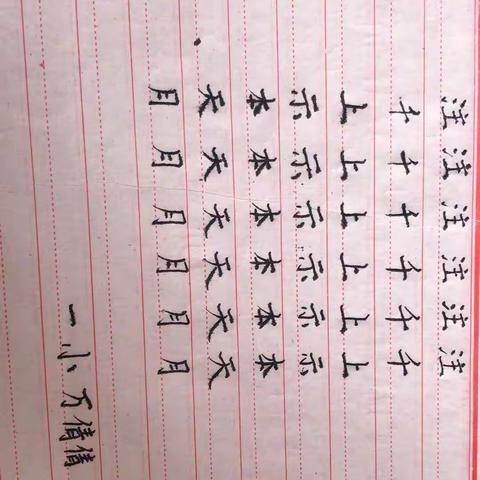 注注注注注注
千千千千千千
上上上上上上
示示示示示示
本本本本本本
天天天天天天
月月月月月月
一小 万倩倩